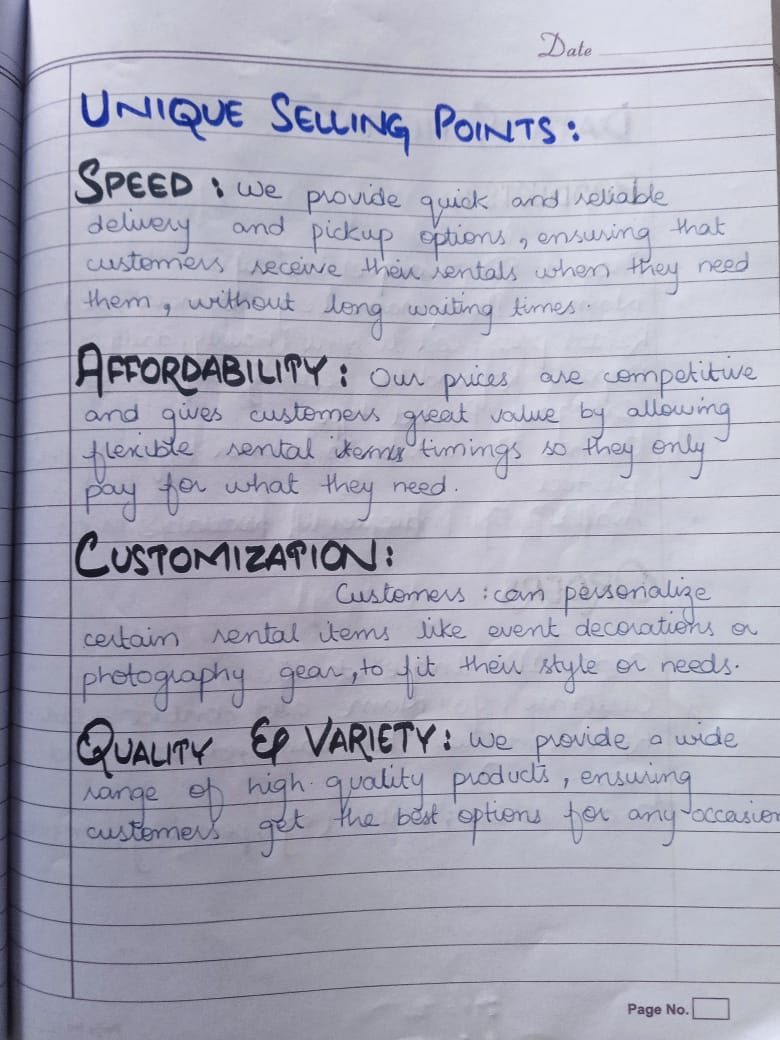 Date
UNIQUE SELLING POINTS:
SPEED: We provide quick and reliable
delivery and pickup options, ensuring that
customers receive their rentals when they need
them, without long waiting times.
AFFORDABILITY: Our prices are competitive
and gives customers great value by allowing
flexible rental items timings so they only
pay for what they need.
CUSTOMIZATION:
Customers : can personalize
certain rental items like event decorations or
photography gear, to fit their style or needs.
QUALITY & VARIETY: We provide a wide
range of high-quality products, ensuring
customers get the best options for any occasion
Page No.